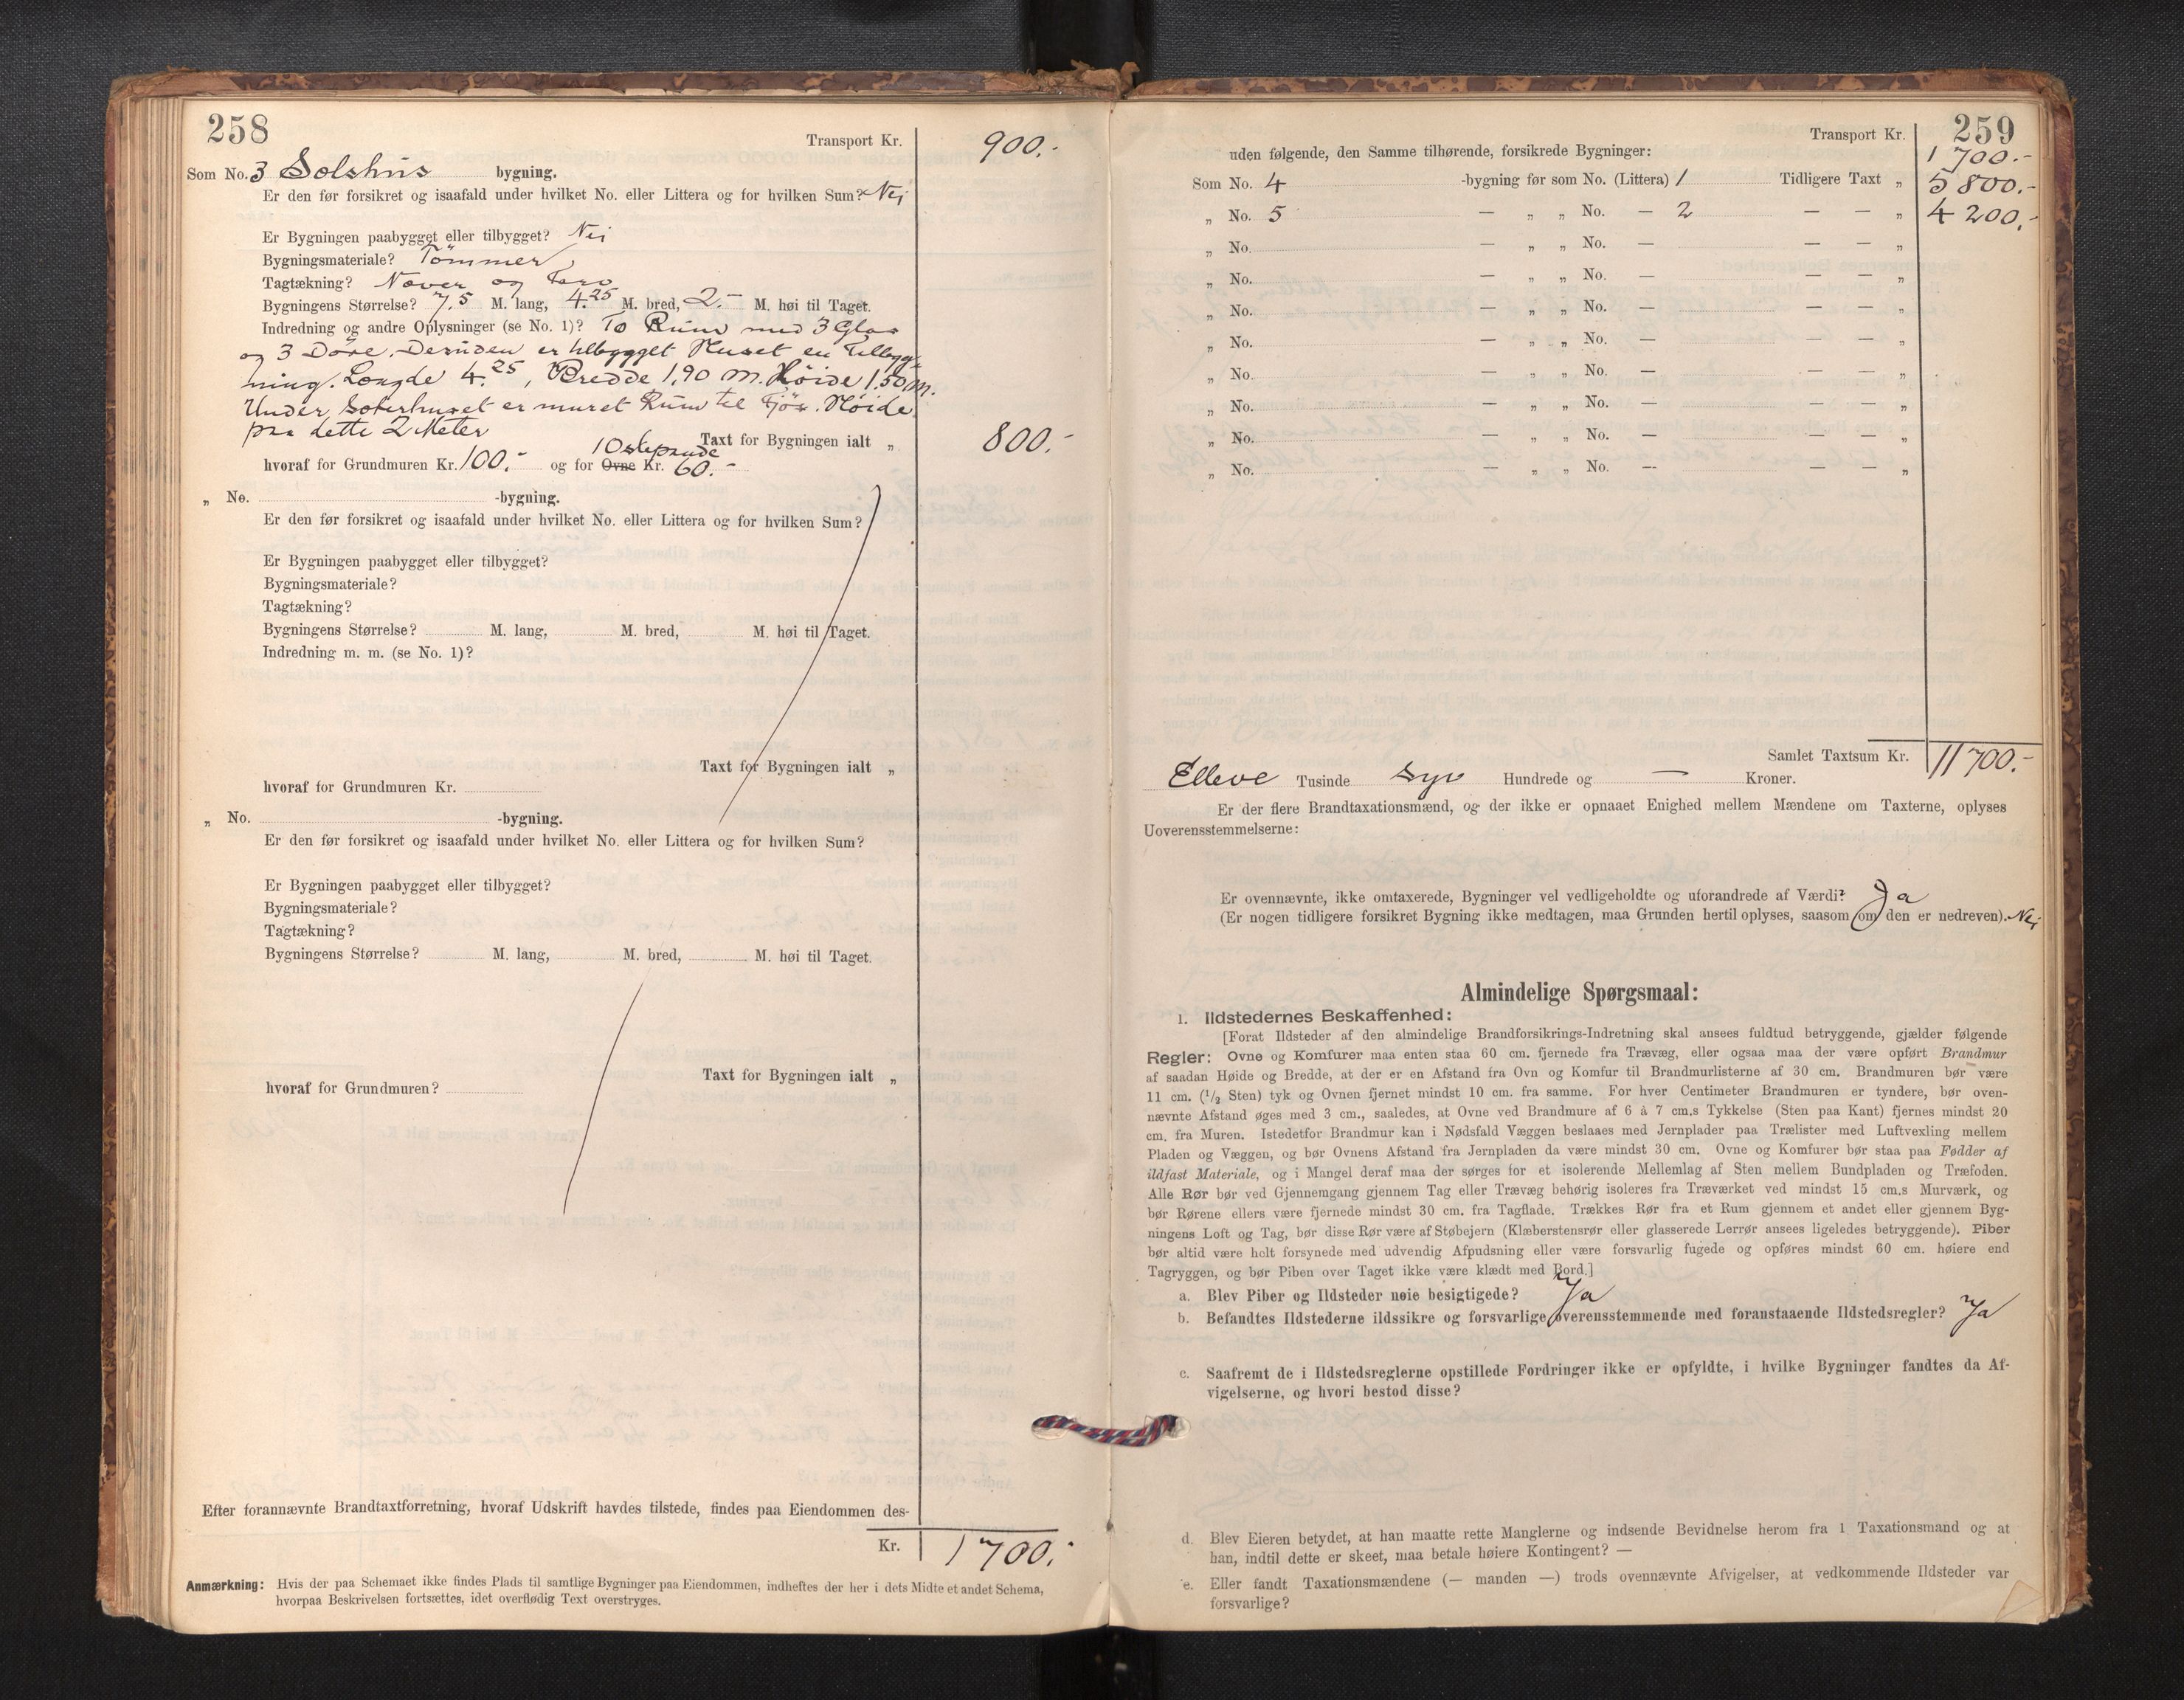 258
Transport Kr. 900.-
Som No. 3 Sælshus bygning.
Er den før forsikret og isaafald under hvilket No. eller Littera og for hvilken Sum? Nei
Er Bygningen paabygget eller tilbygget? Nei
Bygningsmateriale? Tømmer
Tagtækning? Næver og Torv
Bygningens Størrelse? 7,5 M. lang, 4.25 M. bred, 2.- M. høi til Taget.
Indredning og andre Oplysninger (se No. 1)? To Rum med 3 Glas
og 3 Døre. Desuden er tilbygget Huset en Tilbyg-
ning. Længde 4.25, Bredde 1,90 M. Høide 1.50 M.
Under Sæterhuset er muret Rum til Fjøs. Høide
paa dette 2 Meter
Taxt for Bygningen ialt „ 800.-
hvoraf for Grundmuren Kr. 100.- og for Ovne 1 Ostepande Kr. 60.-
„ No. -bygning.
Er den før forsikret og isaafald under hvilket No. eller Littera og for hvilken Sum?
Er Bygningen paabygget eller tilbygget?
Bygningsmateriale?
Tagtækning?
Bygningens Størrelse? M. lang, M. bred, M. høi til Taget.
Indredning m. m. (se No. 1)?
Taxt for Bygningen ialt „
hvoraf for Grundmuren Kr.
„ No. -bygning.
Er den før forsikret og isaafald under hvilket No. eller Littera og for hvilken Sum?
Er Bygningen paabygget eller tilbygget?
Bygningsmateriale?
Tagtækning?
Bygningens Størrelse? M. lang, M. bred, M. høi til Taget.
Taxt for Bygningen ialt „
hvoraf for Grundmuren?
Efter forannævnte Brandtaxtforretning, hvoraf Udskrift havdes tilstede, findes paa Eiendommen des-
Kr. 1700.-
Anmærkning: Hvis der paa Schemaet ikke findes Plads til samtlige Bygninger paa Eiendommen, indheftes der her i dets Midte et andet Schema,
hvorpaa Beskrivelsen fortsættes, idet overflødig Text overstryges.
259
Transport Kr. 1700.-
uden følgende, den Samme tilhørende, forsikrede Bygninger:
Som No. 4 -bygning før som No. (Littera) 1 Tidligere Taxt „ 5800.-
„ No. 5 — „ „ No. — 2 — — „ 4200.-
„ No. — „ „ No. — — — „
„ No. — „ „ No. — — — „
„ No. — „ „ No. — — — „
„ No. — „ „ No. — — — „
„ No. — „ „ No. — — — „
„ No. — „ „ No. — — — „
„ No. — „ „ No. — — — „
„ No. — „ „ No. — — — „
Samlet Taxtsum Kr. 11700.-
Elleve Tusinde Syv Hundrede og — Kroner.
Er der flere Brandtaxationsmænd, og der ikke er opnaaet Enighed mellem Mændene om Taxterne, oplyses
Uoverensstemmelserne:
Er ovennævnte, ikke omtaxerede, Bygninger vel vedligeholdte og uforandrede af Værdi? Ja
(Er nogen tidligere forsikret Bygning ikke medtagen, maa Grunden hertil oplyses, saasom om den er nedreven). Nei
Almindelige Spørgsmaal:
1. Ildstedernes Beskaffenhed:
[Forat Ildsteder af den almindelige Brandforsikrings-Indretning skal ansees fuldtud betryggende, gjælder følgende
Regler: Ovne og Komfurer maa enten staa 60 cm. fjernede fra Trævæg, eller ogsaa maa der være opført Brandmur
af saadan Høide og Bredde, at der er en Afstand fra Ovn og Komfur til Brandmurlisterne af 30 cm. Brandmuren bør være
11 cm. (1/2 Sten) tyk og Ovnen fjernet mindst 10 cm. fra samme. For hver Centimeter Brandmuren er tyndere, bør oven-
nævnte Afstand øges med 3 cm., saaledes, at Ovne ved Brandmure af 6 à 7 cm.s Tykkelse (Sten paa Kant) fjernes mindst 20
cm. fra Muren. Istedetfor Brandmur kan i Nødsfald Væggen beslaaes med Jernplader paa Trælister med Luftvexling mellem
Pladen og Væggen, og bør Ovnens Afstand fra Jernpladen da være mindst 30 cm. Ovne og Komfurer bør staa paa Fødder af
ildfast Materiale, og i Mangel deraf maa der sørges for et isolerende Mellemlag af Sten mellem Bundpladen og Træfoden.
Alle Rør bør ved Gjennemgang gjennem Tag eller Trævæg behørig isoleres fra Træværket ved mindst 15 cm.s Murværk, og
bør Rørene ellers være fjernede mindst 30 cm. fra Tagflade. Trækkes Rør fra et Rum gjennem et andet eller gjennem Byg-
ningens Loft og Tag, bør disse Rør være af Støbejern (Klæberstensrør eller glasserede Lerrør ansees ligeledes betryggende). Piber
bør altid være helt forsynede med udvendig Afpudsning eller være forsvarlig fugede og opføres mindst 60 cm. høiere end
Tagryggen, og bør Piben over Taget ikke være klædt med Bord.]
a. Blev Piber og Ildsteder nøie besigtigede? Ja
b. Befandtes Ildstederne ildssikre og forsvarlige overensstemmende med foranstaaende Ildstedsregler? Ja
c. Saafremt de i Ildstedsreglerne opstillede Fordringer ikke er opfyldte, i hvilke Bygninger fandtes da Af-
vigelserne, og hvori bestod disse?
d. Blev Eieren betydet, at han maatte rette Manglerne og indsende Bevidnelse herom fra 1 Taxationsmand og at
han, indtil dette er skeet, maa betale høiere Kontingent? —
e. Eller fandt Taxationsmændene (— manden —) trods ovennævnte Afvigelser, at vedkommende Ildsteder var
forsvarlige?